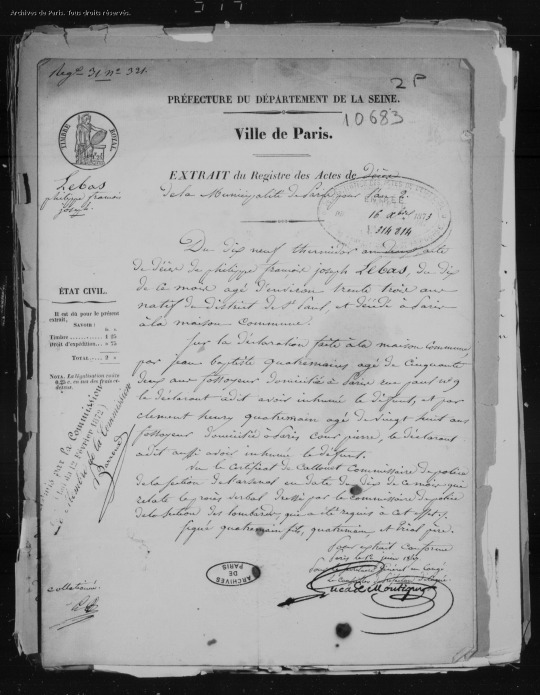 Archives de Paris. Tous droits réservés.
Reg. 31 n° 321.
2P
PRÉFECTURE DU DÉPARTEMENT DE LA SEINE.
10683
TIMBRE ROYAL
Ville de Paris.
EXTRAIT du Registre des Actes de Décès
de la Municipalité de Paris pour l'an 2.
Lebas
philippe françois
joseph
16 1873
E 314 814
Du dix neuf thermidor an deux acte
de décès de philippe françois joseph Lebas, du dix
de ce mois agé d'environ trente trois ans
natif du district de St Paul, et décédé à Paris
à la maison Commune.
ÉTAT CIVIL.
Il est dû pour le présent
extrait,
SAVOIR :
Timbre 1 25
Droit d'expédition » 75
TOTAL 2 »
NOTA. La légalisation coûte
0,25 c. en sus des frais ci-
dessus.
Sur la déclaration faite à la maison Commune
par jean baptiste quatremaine agé de Cinquante
deux ans fossoyeur domicilié à Paris rue n° 9
le déclarant a dit avoir inhumé le défunt, et par
clement henry quatremain agé de vingt huit ans
fossoyeur domicilié à Paris Cour pierre, le déclarant
a dit aussi avoir inhumé le défunt.
Vu le Certificat de Commissaire de police
de la section de en date du dix de ce mois qui
relate le procès verbal dressé par le Commissaire de police
de la Section des lombards, qui a été requis à cet effet,
Signé quatremain fils, quatremain, et père.
par la Commission
loi du 12 février 1872
Le Membre de la Commission
Pour extrait conforme
Paris le 12 juin
ARCHIVES
DE
PARIS
collationné